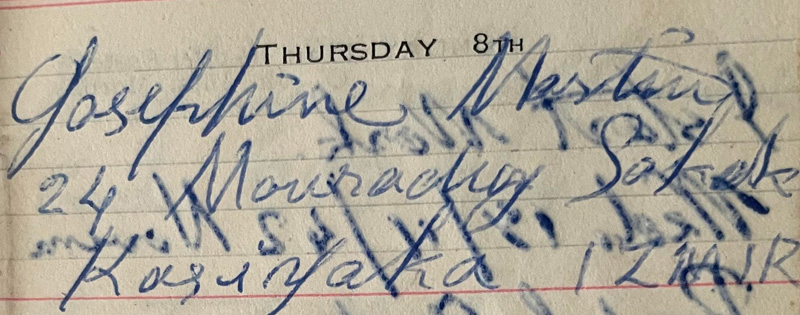 THURSDAY 8TH
Josephine Martin
24 Mouradiy Sokak
Karsiyaka IZMIR